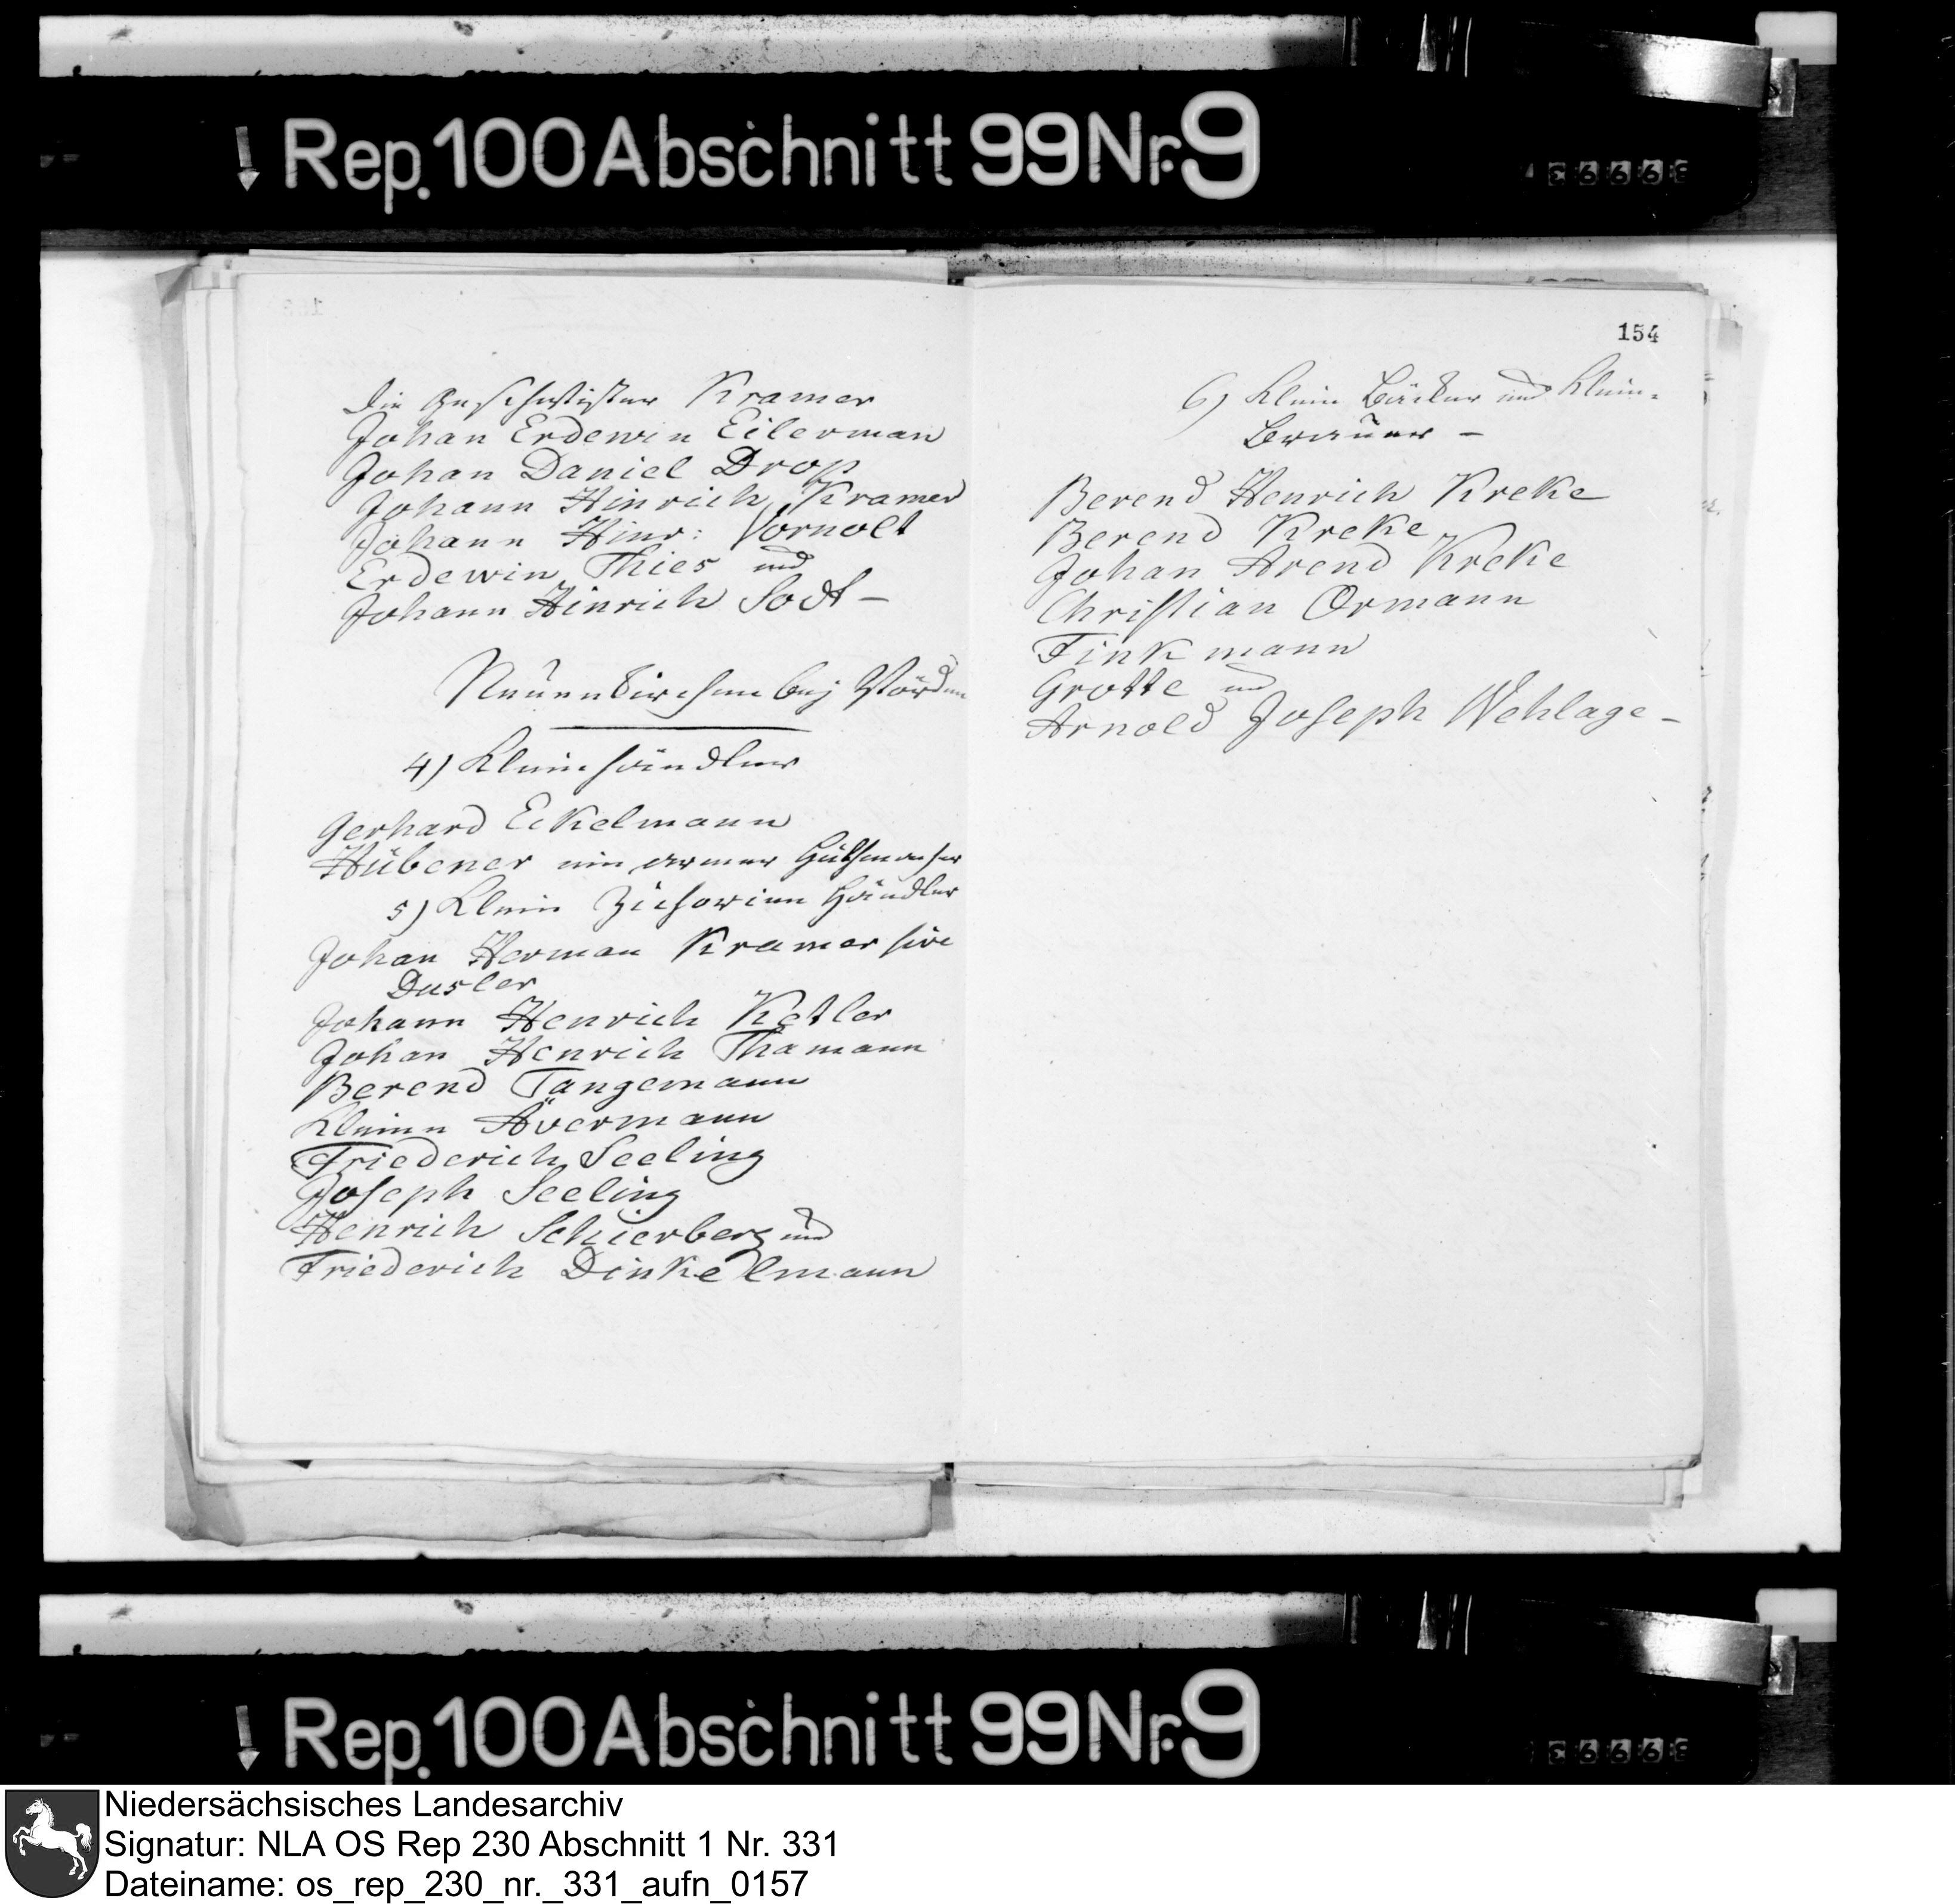 Rep. 100 Abschnitt 99 Nr. 9
Die Geschwister Kramer
Johan Erdewin Eilerman
Johan Daniel Drop
Johann Hinrich Kramer
Johann Hinr: Vornolt
Erdewin Thies und
Johann Hinrich Sodt –
Neuenkirchen bej Vörden
4) Kleinhändler
Gerhard Eckelmann
Hübener ein armer Huthmacher
5) Klein Zichorien Händler
Johan Herman Kramer sive
Dusler
Johann Henrich Ketler
Johan Henrich Thamann
Berend Tangemann
Kleine Avermann
Friederich Seeling
Joseph Seeling
Henrich Schierberg und
Friederich Dinkelmann
154
6) Klein Bäcker und Klein-
Brauer –
Berend Henrich Kreke
Berend Kreke
Johan Arend Kreke
Christian Ormann
Finkmann
Grotte und
Arnold Joseph Wehlage –
Rep. 100 Abschnitt 99 Nr. 9
Niedersächsisches Landesarchiv
Signatur: NLA OS Rep 230 Abschnitt 1 Nr. 331
Dateiname: os_rep_230_nr._331_aufn_0157